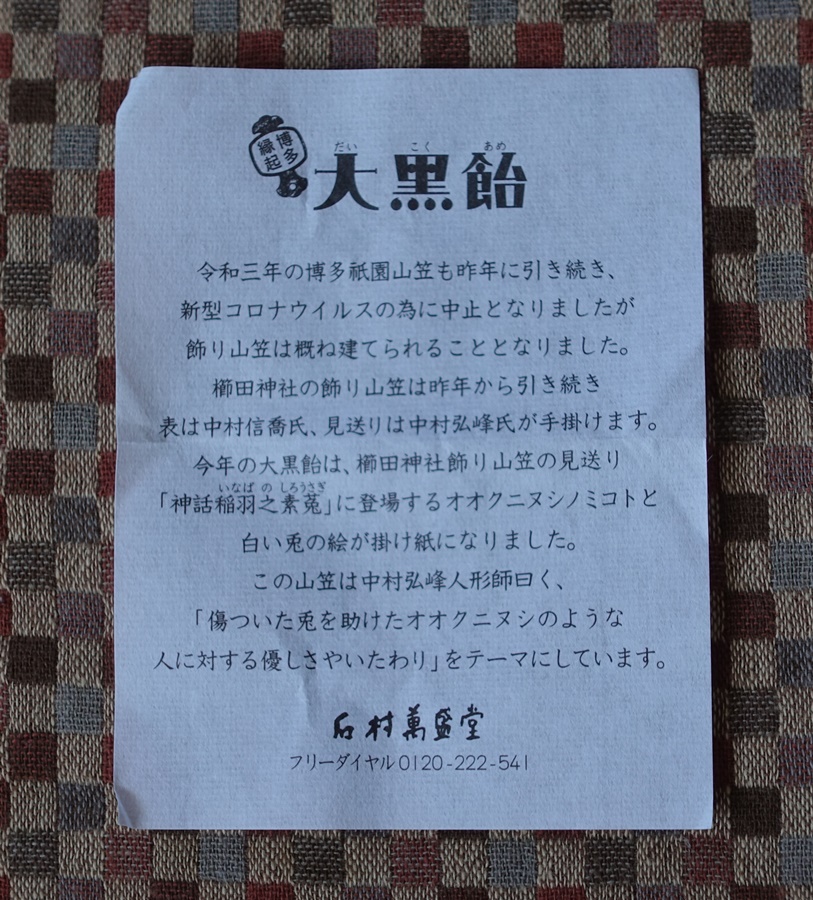 博多
縁起
だい こく あめ
大黒飴
令和三年の博多祇園山笠も昨年に引き続き、
新型コロナウイルスの為に中止となりましたが
飾り山笠は概ね建てられることとなりました。
櫛田神社の飾り山笠は昨年から引き続き
表は中村信喬氏、見送りは中村弘峰氏が手掛けます。
今年の大黒飴は、櫛田神社飾り山笠の見送り
いなば の しろうさぎ
「神話稲羽之素菟」に登場するオオクニヌシノミコトと
白い兎の絵が掛け紙になりました。
この山笠は中村弘峰人形師曰く、
「傷ついた兎を助けたオオクニヌシのような
人に対する優しさやいたわり」をテーマにしています。
石村萬盛堂
フリーダイヤル0120-222-541